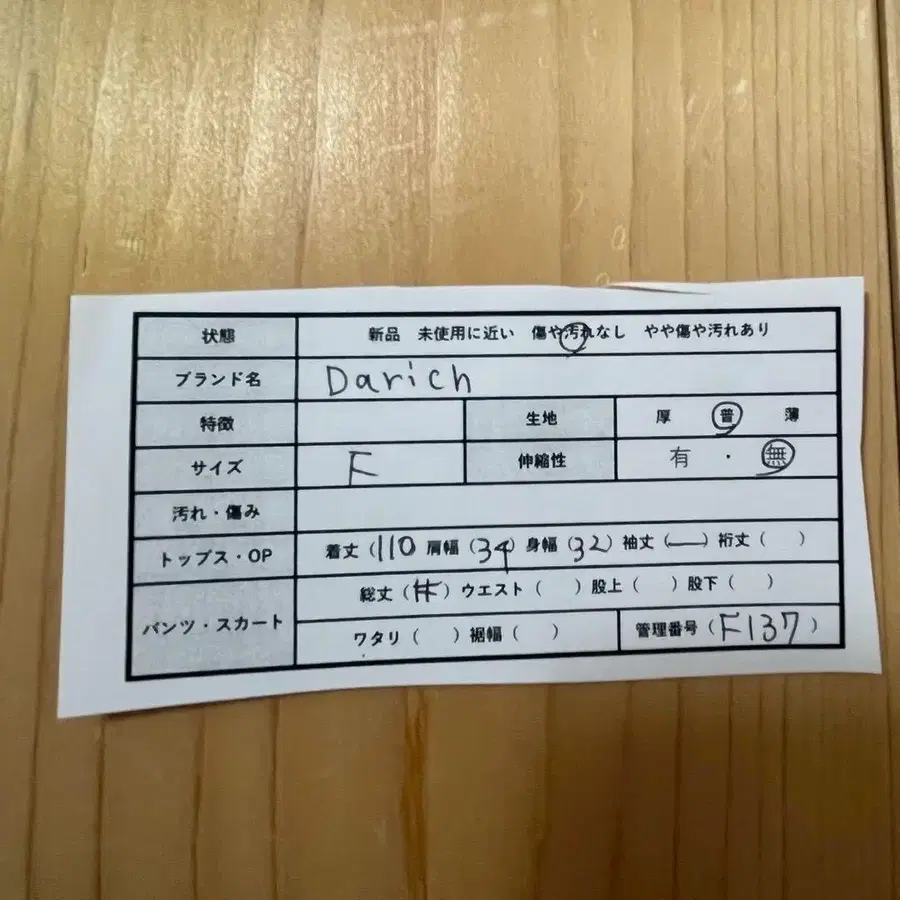 状態 新品 未使用に近い 傷や汚れなし やや傷や汚れあり
ブランド名 Darich
特徴 生地 厚 普 薄
サイズ F 伸縮性 有 ・ 無
汚れ・傷み
トップス・OP 着丈(110 肩幅(34) 身幅(32) 袖丈(ー) 裄丈( )
パンツ・スカート 総丈( ) ウエスト( ) 股上( ) 股下( )
ワタリ( ) 裾幅( ) 管理番号(F137)